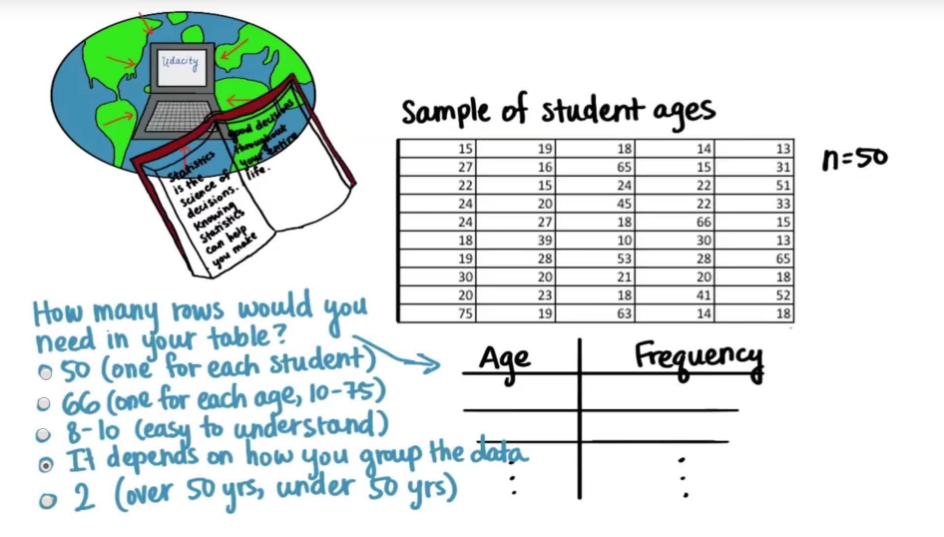 Udacity
Statistics
is the
science of
decisions.
Knowing
statistics
can help
you make
good decisions
throughout
your entire
life.
Sample of student ages
15 19 18 14 13
27 16 65 15 31
22 15 24 22 51
24 20 45 22 33
24 27 18 66 15
18 39 10 30 13
19 28 53 28 65
30 20 21 20 18
20 23 18 41 52
75 19 63 14 18
n=50
How many rows would you
need in your table?
50 (one for each student)
66 (one for each age, 10-75)
8-10 (easy to understand)
It depends on how you group the data
2 (over 50 yrs, under 50 yrs)
Age Frequency